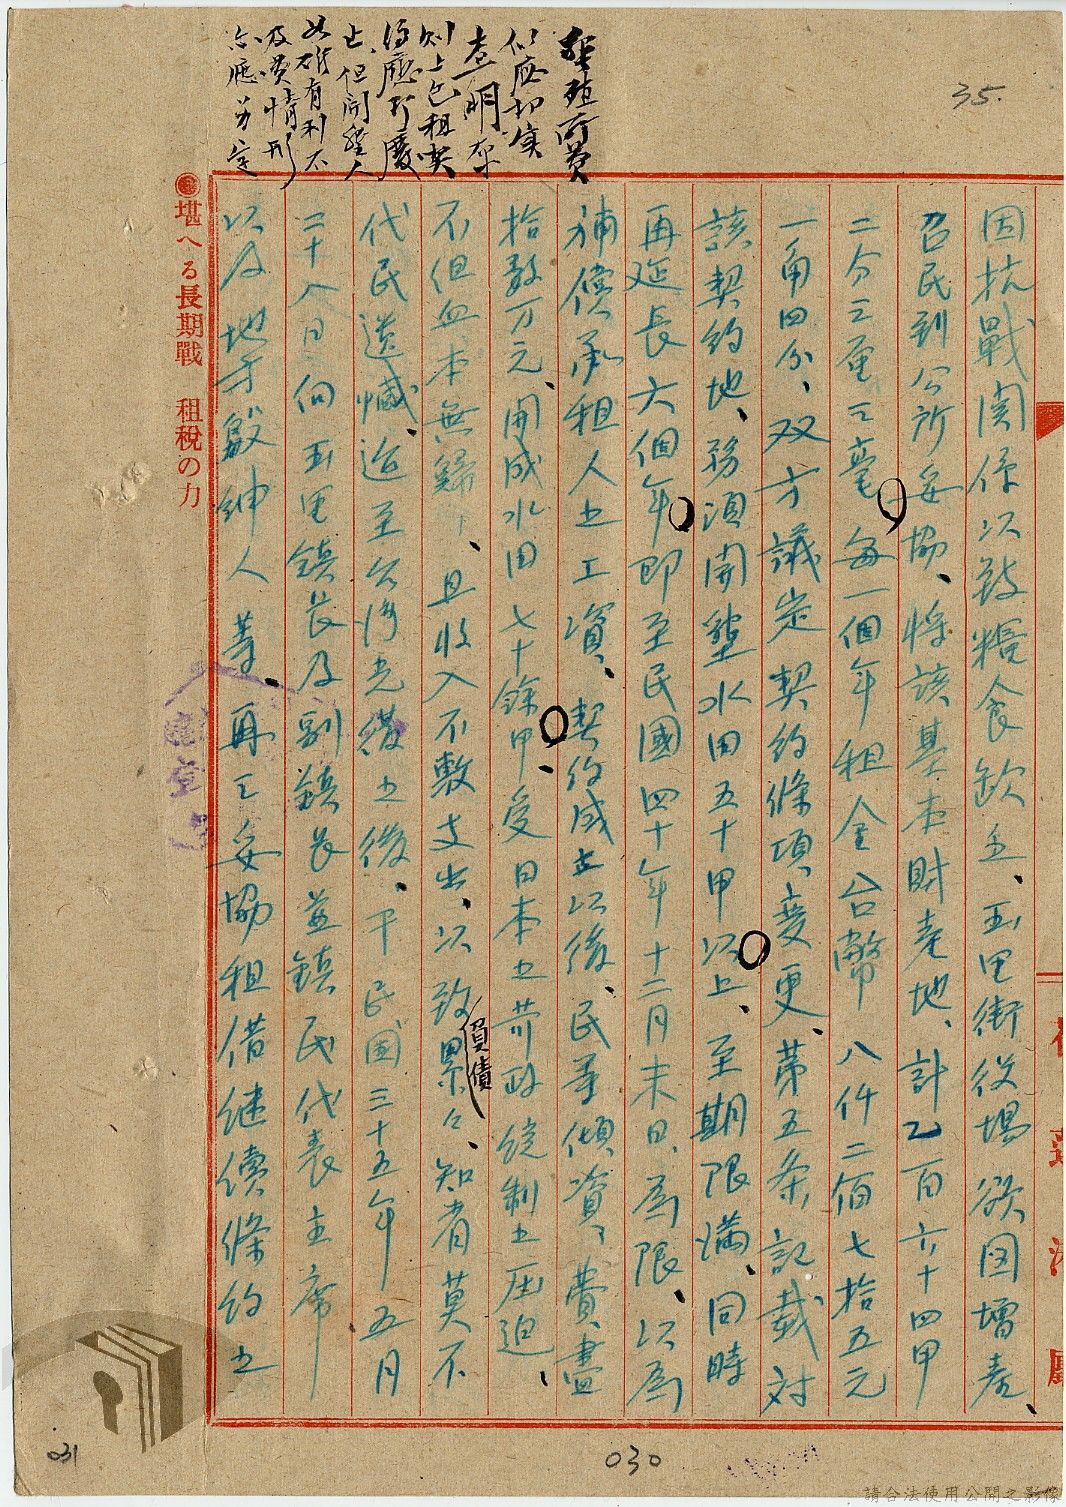 35.
墾殖所費
似應切實
查明，否
則上包租契
約應予廢
止，但開墾人
如確有利不
及費情形
亦應另定
因抗戰関係以致糧食欽乏、玉里街役場欲図增產、
召民到公所妥協、將該基本財產地、計乙百六十四甲
二分三厘三毫每一個年租金台幣八仟二佰七拾五元
一角四分、双方議定契約條項变更、第五条記載対
該契約地、務須開墾水田五十甲以上、至期限満、同時
再延長六個年即至民國四十年十二月末日、為限、以為
補償承租人之工資、契約成立以後、民等傾資、費盡
拾数万元、開成水田七十餘甲、受日本之苛政統制之圧迫、
不但血本無歸、且收入不敷支出、以致負債累々、知者莫不
代民遺憾、迨至台湾光復之後、于民國三十五年五月
二十八日向玉里鎮長及副鎮長並鎮民代表主席
以及地方鄉紳人等、再三妥協租借継續條約之
●堪へる長期戰 租稅の力
花蓮港廳
030
031
請合法使用公開之影像